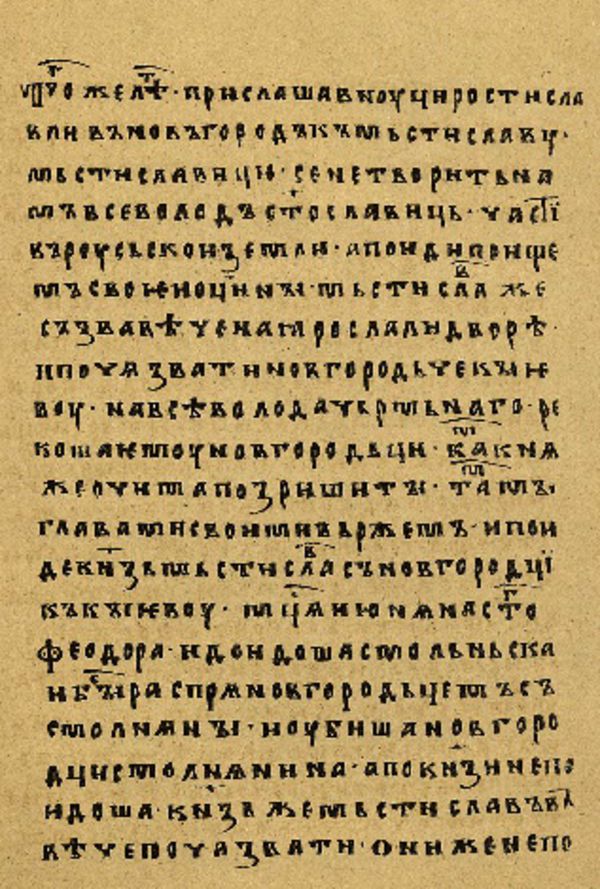 тоже лѣ · прислаша въноуци ростисла
вли въ новъгородъ къ мьстиславу ·
мьстиславици · се не творить на
мъ всеволодъ стославиць · части
въ роусьскои земли · а поиди поище
мъ своѥи оцины · мьстислав же
съзва вѣче на ꙗрославли дворѣ ·
и поча звати новгородьче кыѥ
воу · на всеволода чьрмьнаго · ре
коша ѥмоу новгородьци · камо кнѧ
же очима позриши ты · тамъ
главами своими вьржемъ · и пои
де кнзь мьстислав съ новгородци
къ кыѥвоу · мца июнѧ на сто
феодора · и доидоша смольньска
и бы распрѧ новгородьчемъ съ
смолнѧны · и оубиша новгоро
дци смолнѧнина · а по кнзи не по
идоша · кнзь же мьстиславъ въ
вѣче поча звати · они же не по